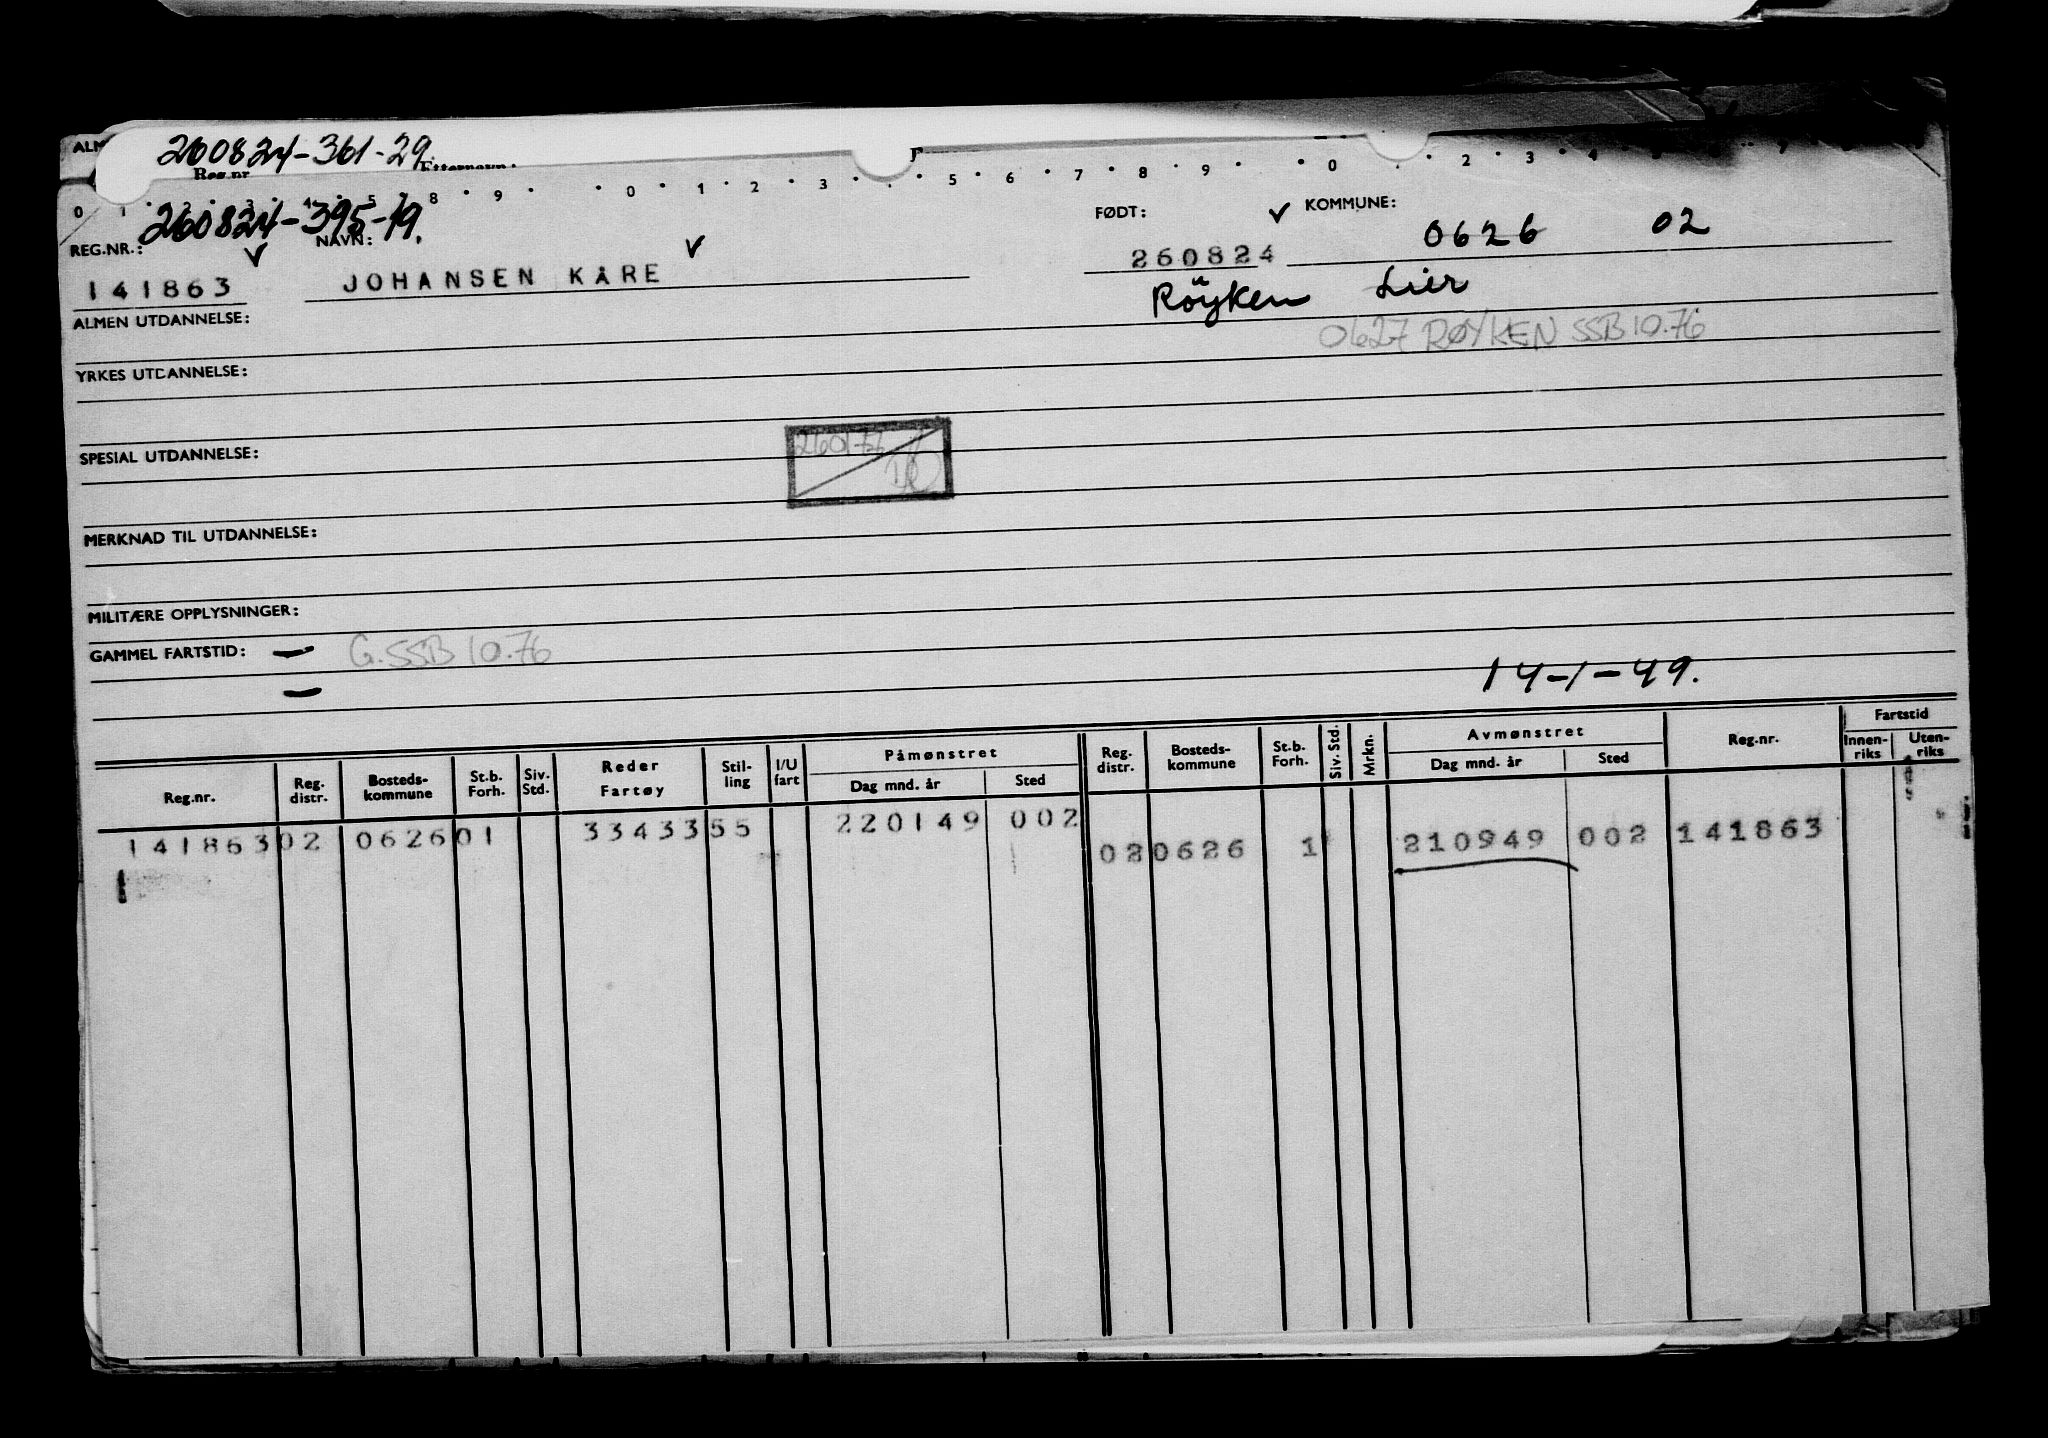 260824-361-29.
Reg.nr Etternavn:
0 1 2 3 4 5 7 8 9 0 1 2 3 5 6 7 8 9 0 2 3 4
260824-395-19.
REG.NR.: NAVN: FØDT: KOMMUNE:
141863 JOHANSEN KÅRE 260824 0626 02
Röyken Lier
0627 RØYKEN SSB 10.76
ALMEN UTDANNELSE:
YRKES UTDANNELSE:
SPESIAL UTDANNELSE:
MERKNAD TIL UTDANNELSE:
MILITÆRE OPPLYSNINGER:
GAMMEL FARTSTID: — G. SSB 10.76
—
14-1-49.
Reg.nr. Reg. distr. Bosteds- kommune St.b. Forh. Siv. Std. Reder Fartøy Stil- ling I/U fart Påmønstret Dag mnd. år Sted Reg. distr. Bosteds- kommune St.b. Forh. Siv. Std. Mrkn. Avmønstret Dag mnd. år Sted Reg.nr. Fartstid Innen- riks Uten- riks
141863 02 0626 01 33433 55 220149 002 02 0626 1 210949 002 141863